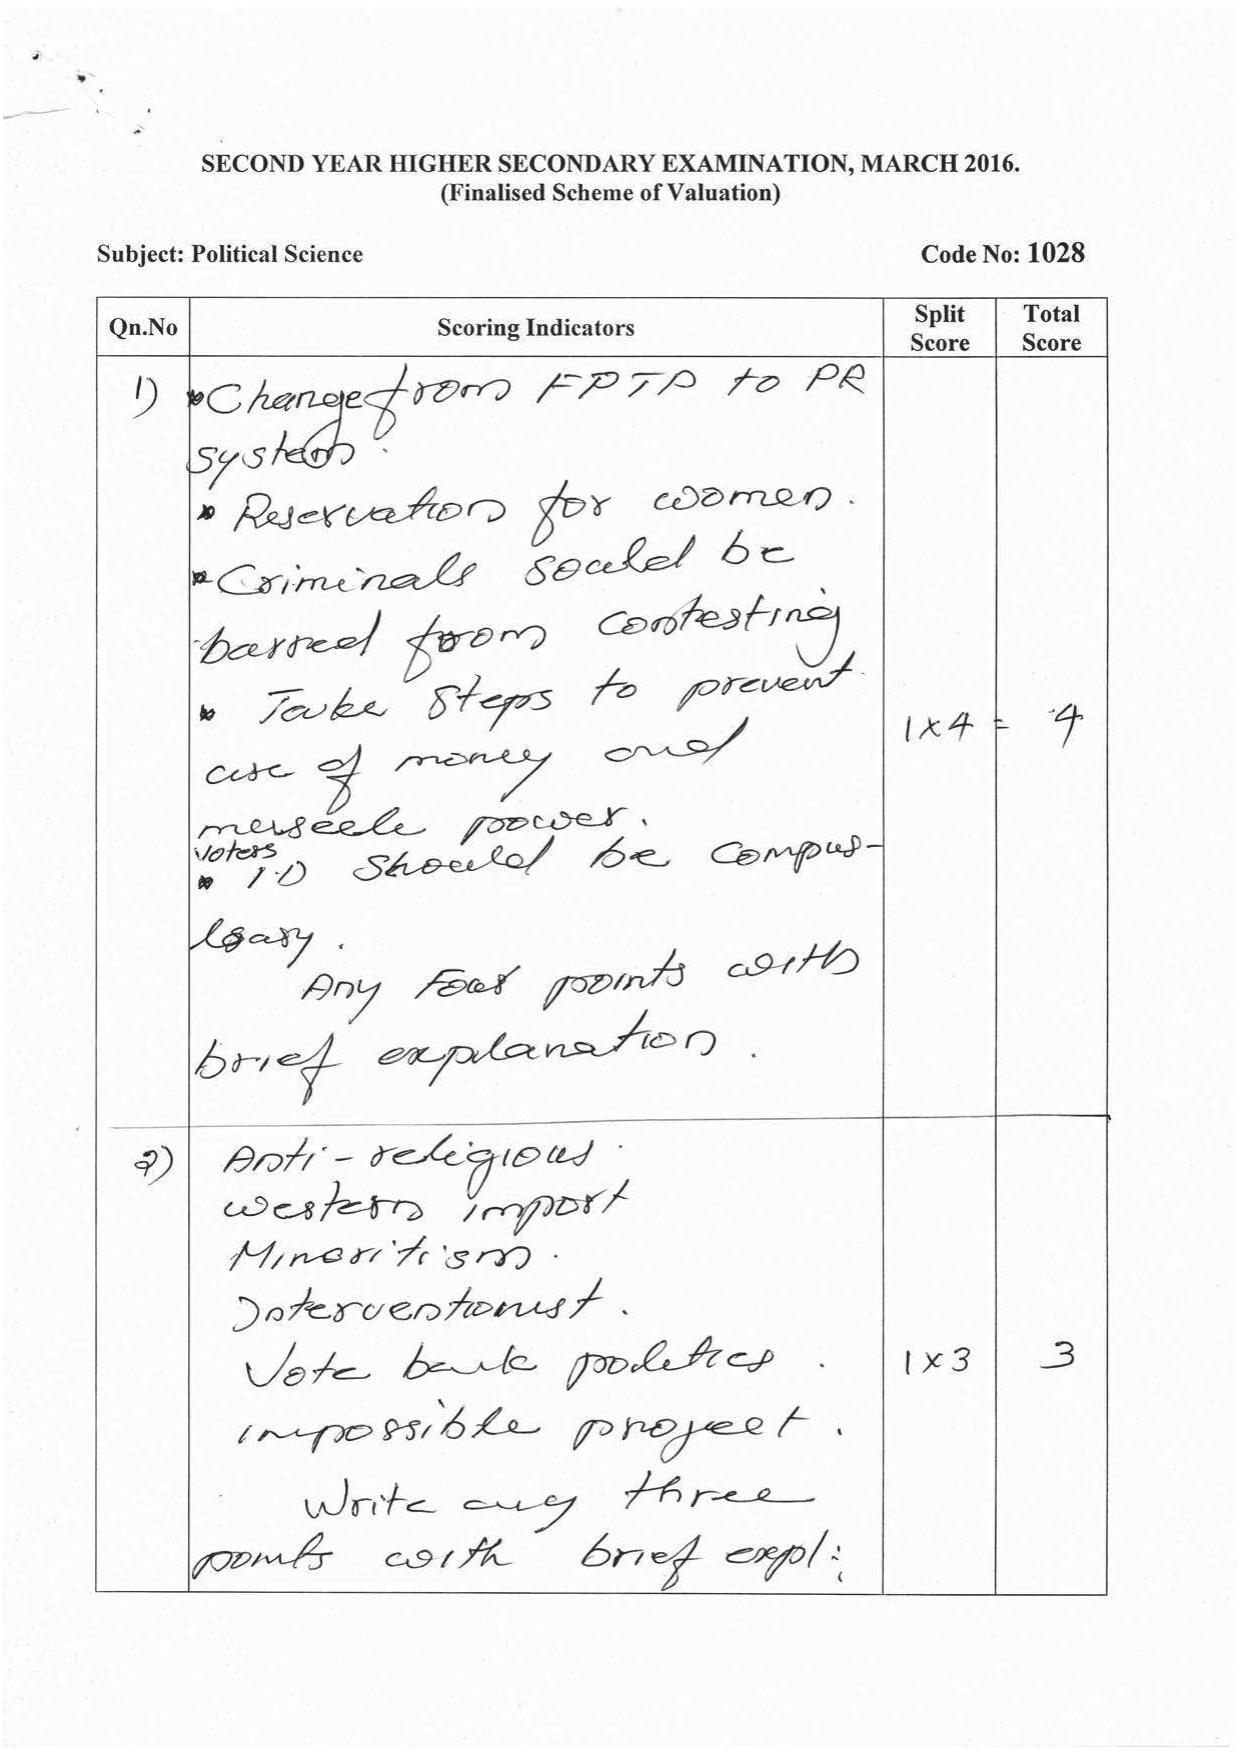 SECOND YEAR HIGHER SECONDARY EXAMINATION, MARCH 2016.
(Finalised Scheme of Valuation)
Subject: Political Science Code No: 1028
Qn.No Scoring Indicators Split Score Total Score
1) * Change from FPTP to PR
system.
* Reservation for women.
* Criminals sould be
barred from contesting
* Take steps to prevent
use of money and 1x4 = 4
muscle power.
Voters
* I.D should be compus-
lsary.
Any Four points with
brief explanation.
2) Anti-religious.
Western import
Minoritism.
Interventionist.
Vote bank politics. 1x3 3
impossible project.
Write any three
points with brief expl: